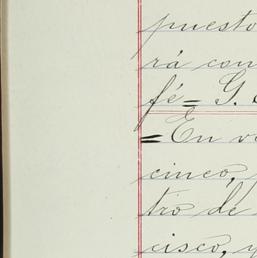 puesto
rá con
fé= G.
=En v
cinco,
tro de
cisco, y